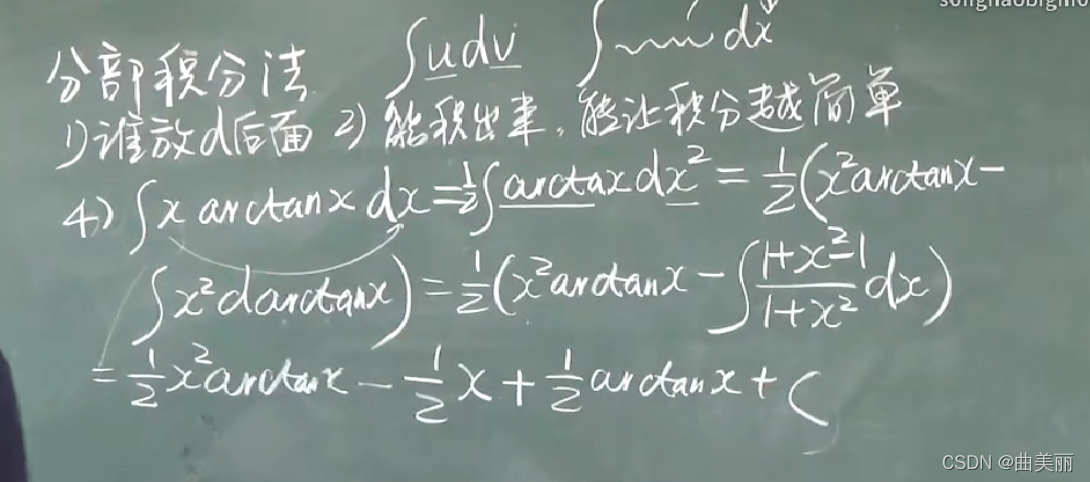 分部积分法 ∫udv ∫ dx
1)谁放d后面 2)能积出来,能让积分越简单
4) ∫x arctanx dx=½∫arctaxdx²=½(x²arctanx-
∫x²darctanx)=½(x²arctanx-∫(1+x²-1)/(1+x²)dx)
=½x²arctanx-½x+½arctanx+C
CSDN @曲美丽